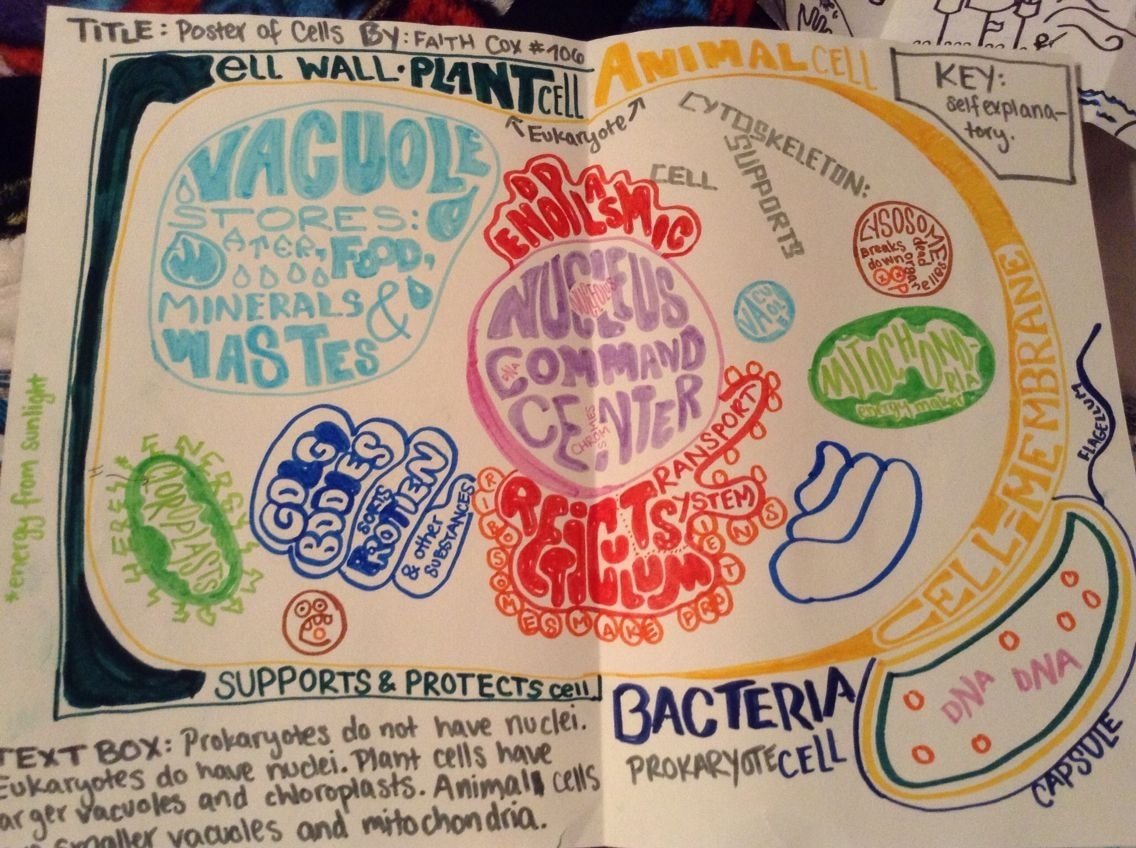 TITLE: Poster of Cells BY: FAITH COX #106
CELL WALL • PLANT CELL
ANIMAL CELL
KEY:
self explana-
tory.
Eukaryote
CYTOSKELETON:
SUPPORTS
CELL
VACUOLE
STORES:
WATER, FOOD,
MINERALS &
WASTES
ENDOPLASMIC
NUCLEUS
COMMAND
DNA
CENTER
VACUOLE
LYSOSOME
Breaks
down
dead
organelles
MITOCHOND-
RIA
energy maker
CELL MEMBRANE
FLAGELLUM
*energy from sunlight
GOLGI
BODIES
SORTS
PROTIEN
& other
SUBSTANCES
RETICULUM
TRANSPORT
SYSTEM
RIBOSOMES MAKE PROTIENS
SUPPORTS & PROTECTS cell
BACTERIA
PROKARYOTE CELL
DNA DNA
CAPSULE
TEXT BOX: Prokaryotes do not have nuclei.
Eukaryotes do have nuclei. Plant cells have
larger vacuoles and chloroplasts. Animal cells
smaller vacuoles and mitochondria.